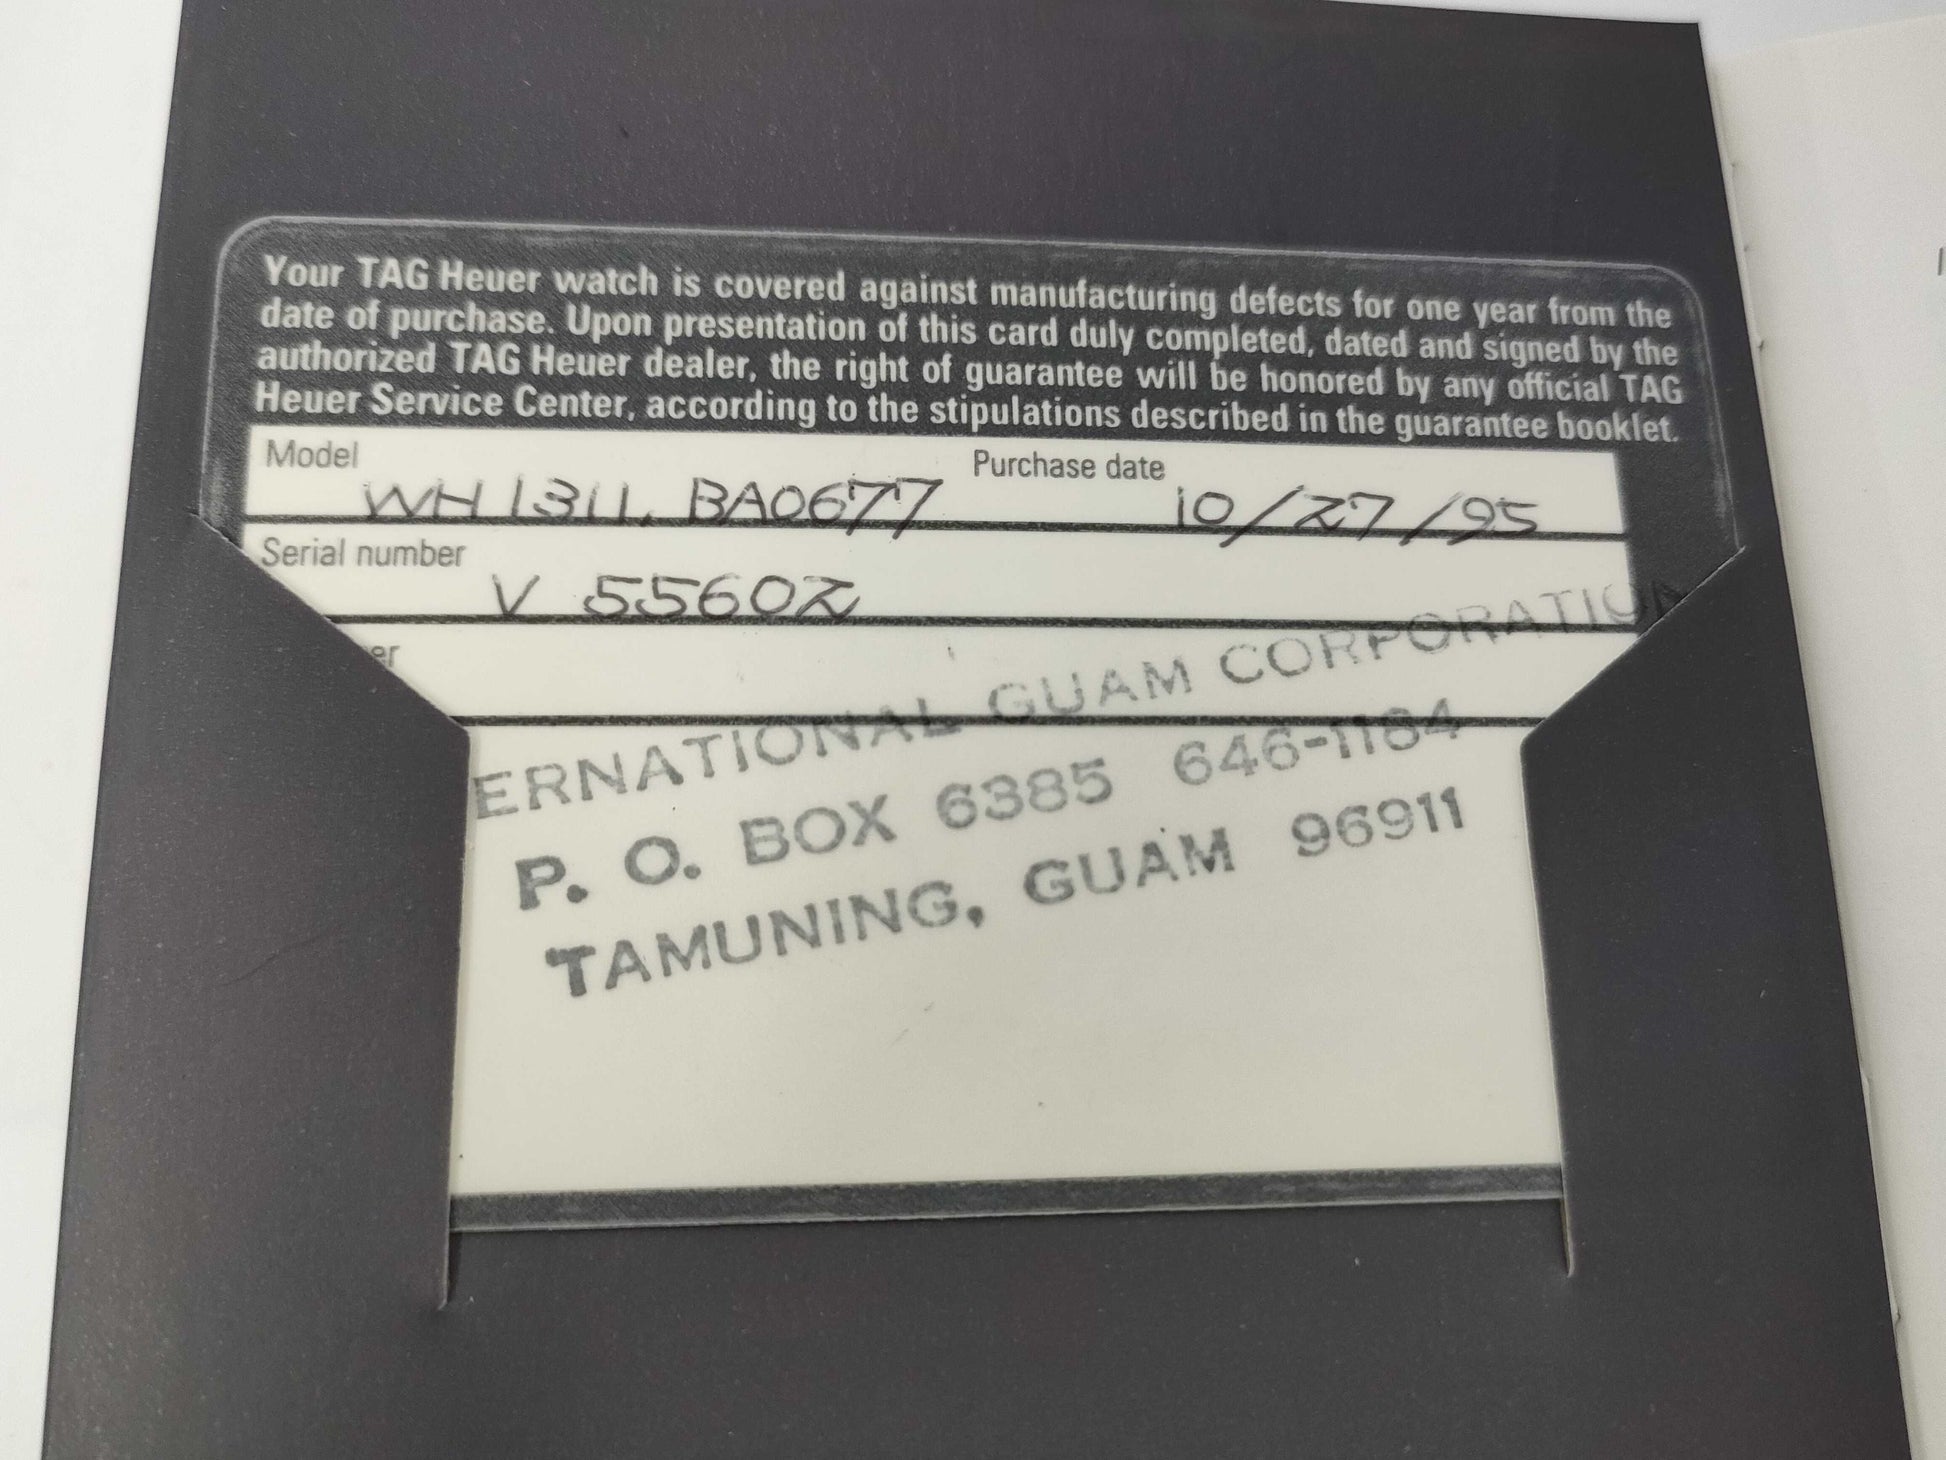 Your TAG Heuer watch is covered against manufacturing defects for one year from the
date of purchase. Upon presentation of this card duly completed, dated and signed by the
authorized TAG Heuer dealer, the right of guarantee will be honored by any official TAG
Heuer Service Center, according to the stipulations described in the guarantee booklet.
Model Purchase date
WH1311. BA0677 10/27/95
Serial number
V 55602
er
ERNATIONAL GUAM CORPORATION
P. O. BOX 6385 646-1164
TAMUNING, GUAM 96911